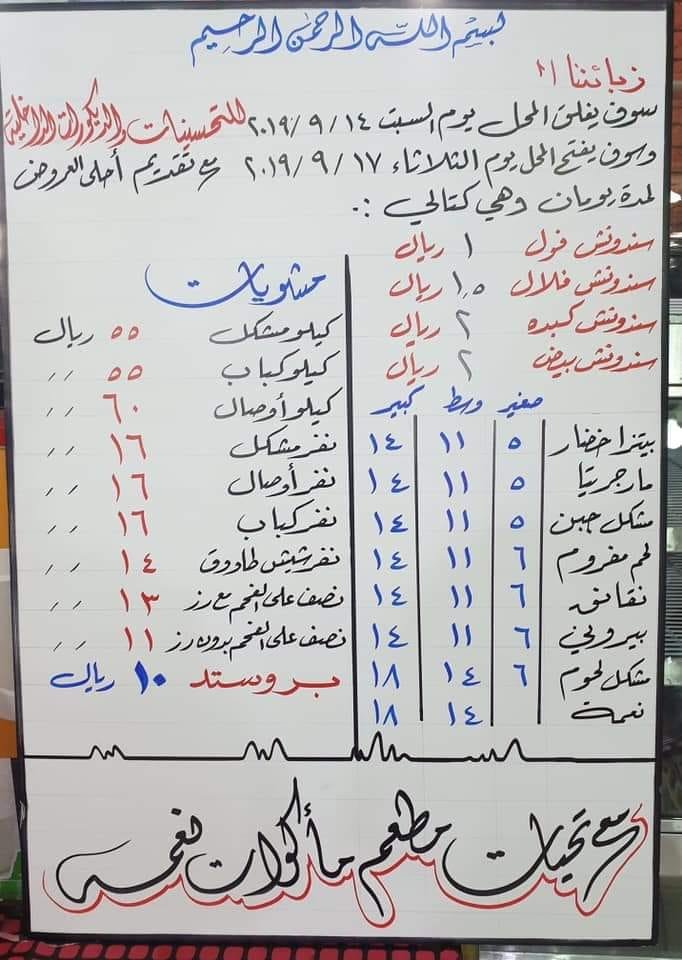 بسم الله الرحمن الرحيم
زبائننا
سوف يغلق المحل يوم السبت ١٤ / ٩ / ٢٠١٩ للتحسينات والديكورات الداخلية
وسوف يفتح المحل يوم الثلاثاء ١٧ / ٩ / ٢٠١٩ مع تقديم أحلى العروض
لمدة يومان وهي كتالي :.
سندوتش فول ١ ريال
سندوتش فلافل ١,٥ ريال
سندوتش كبده ٢ ريال
سندوتش بيض ٢ ريال
صغير وسط كبير
بيتزا خضار ٥ ١١ ١٤
مارجريتا ٥ ١١ ١٤
مشكل جبن ٥ ١١ ١٤
لحم مفروم ٦ ١١ ١٤
نقانق ٦ ١١ ١٤
بيروني ٦ ١١ ١٤
مشكل لحوم ٦ ١٤ ١٨
نعمة ١٤ ١٨
مشويات
كيلو مشكل ٥٥ ريال
كيلو كباب ٥٥ //
كيلو أوصال ٦٠ //
نفر مشكل ١٦ //
نفر أوصال ١٦ //
نفر كباب ١٦ //
نفر شيش طاووق ١٤ //
نصف على الفحم مع رز ١٣ //
نصف على الفحم بدون رز ١١ //
بروستد ١٠ ريال
مع تحيات مطعم مأكولات نعمه